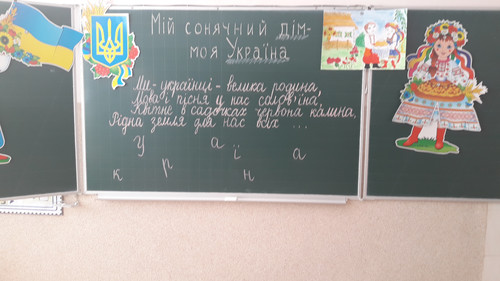 Мій сонячний дім-
моя Україна
Ми - українці - велика родина,
Мова і пісня у нас солов'їна,
Квітне в садочках червона калина,
Рідна земля для нас всіх ...
У а ї а
к р н